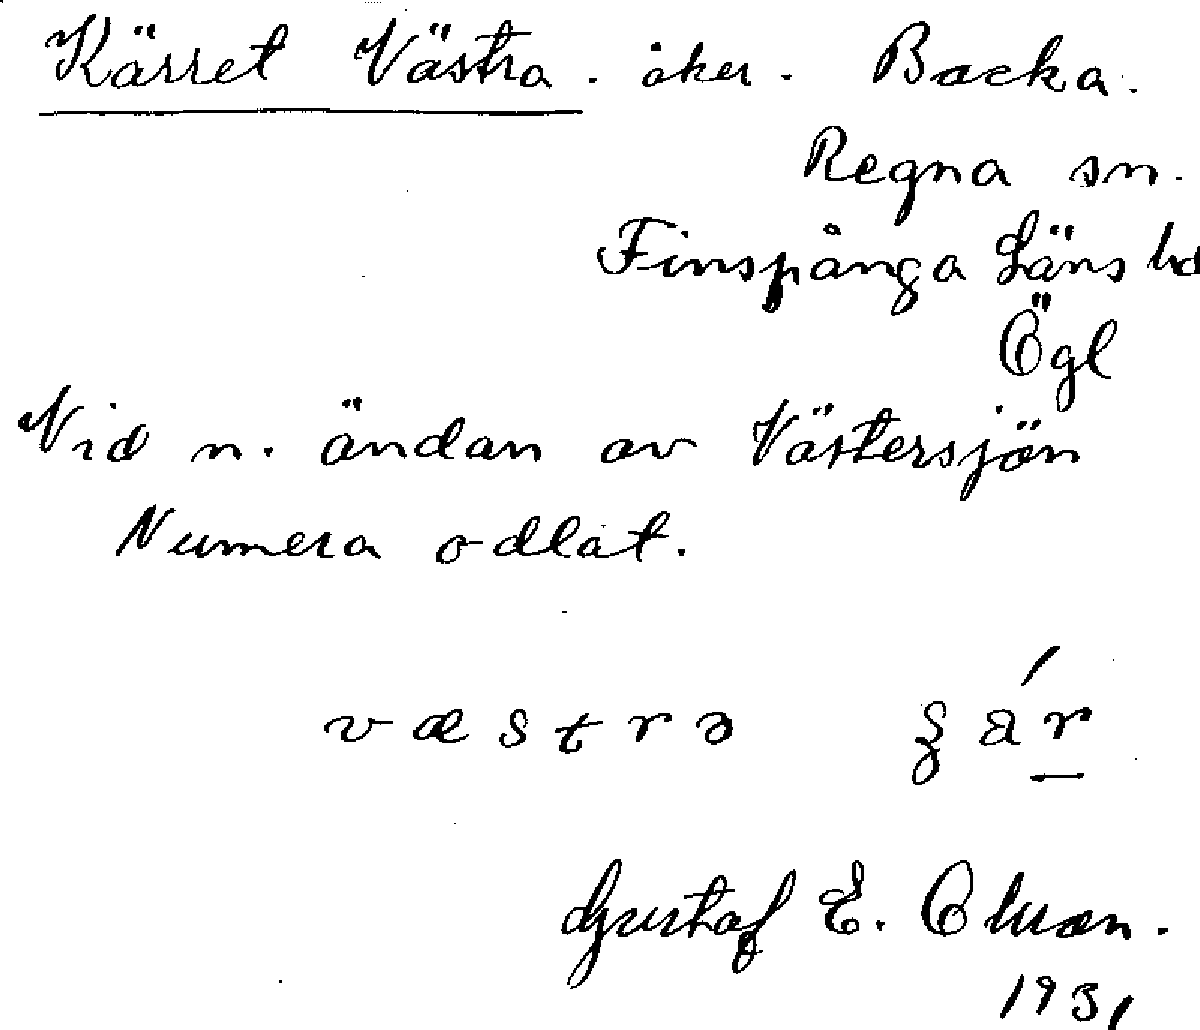 Kärret Västra. åker. Backa.
Regna sn.
Finspånga Läns hd
Ögl
Vid n. ändan av Västersjön
Numera odlat.
væstrə
Gustaf E.
1931